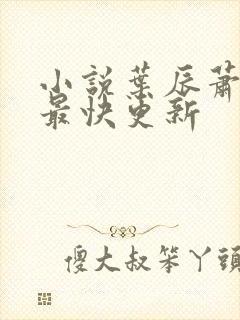 小說葉辰蕭
最快更新
傻大叔笨丫頭